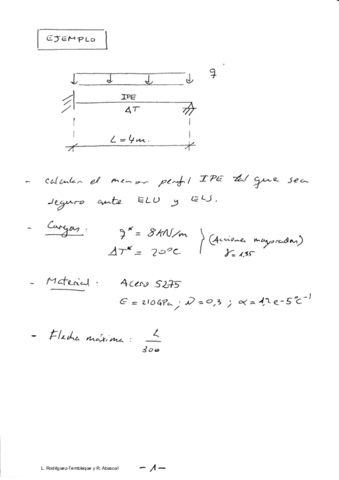 EJEMPLO
q
IPE
ΔT
L = 4m.
- Calcular el menor perfil IPE tal que sea
seguro ante ELU y ELS.
- Cargas: q* = 8 kN/m
ΔT* = 20ºC } (Acciones mayoradas)
γ = 1,35
- Material: Acero S275
E = 210 GPa; ν = 0,3; α = 1,2e-5 ºC⁻¹
- Flecha máxima: L/300
L. Rodríguez-Tembleque y R. Abascal
- 1 -